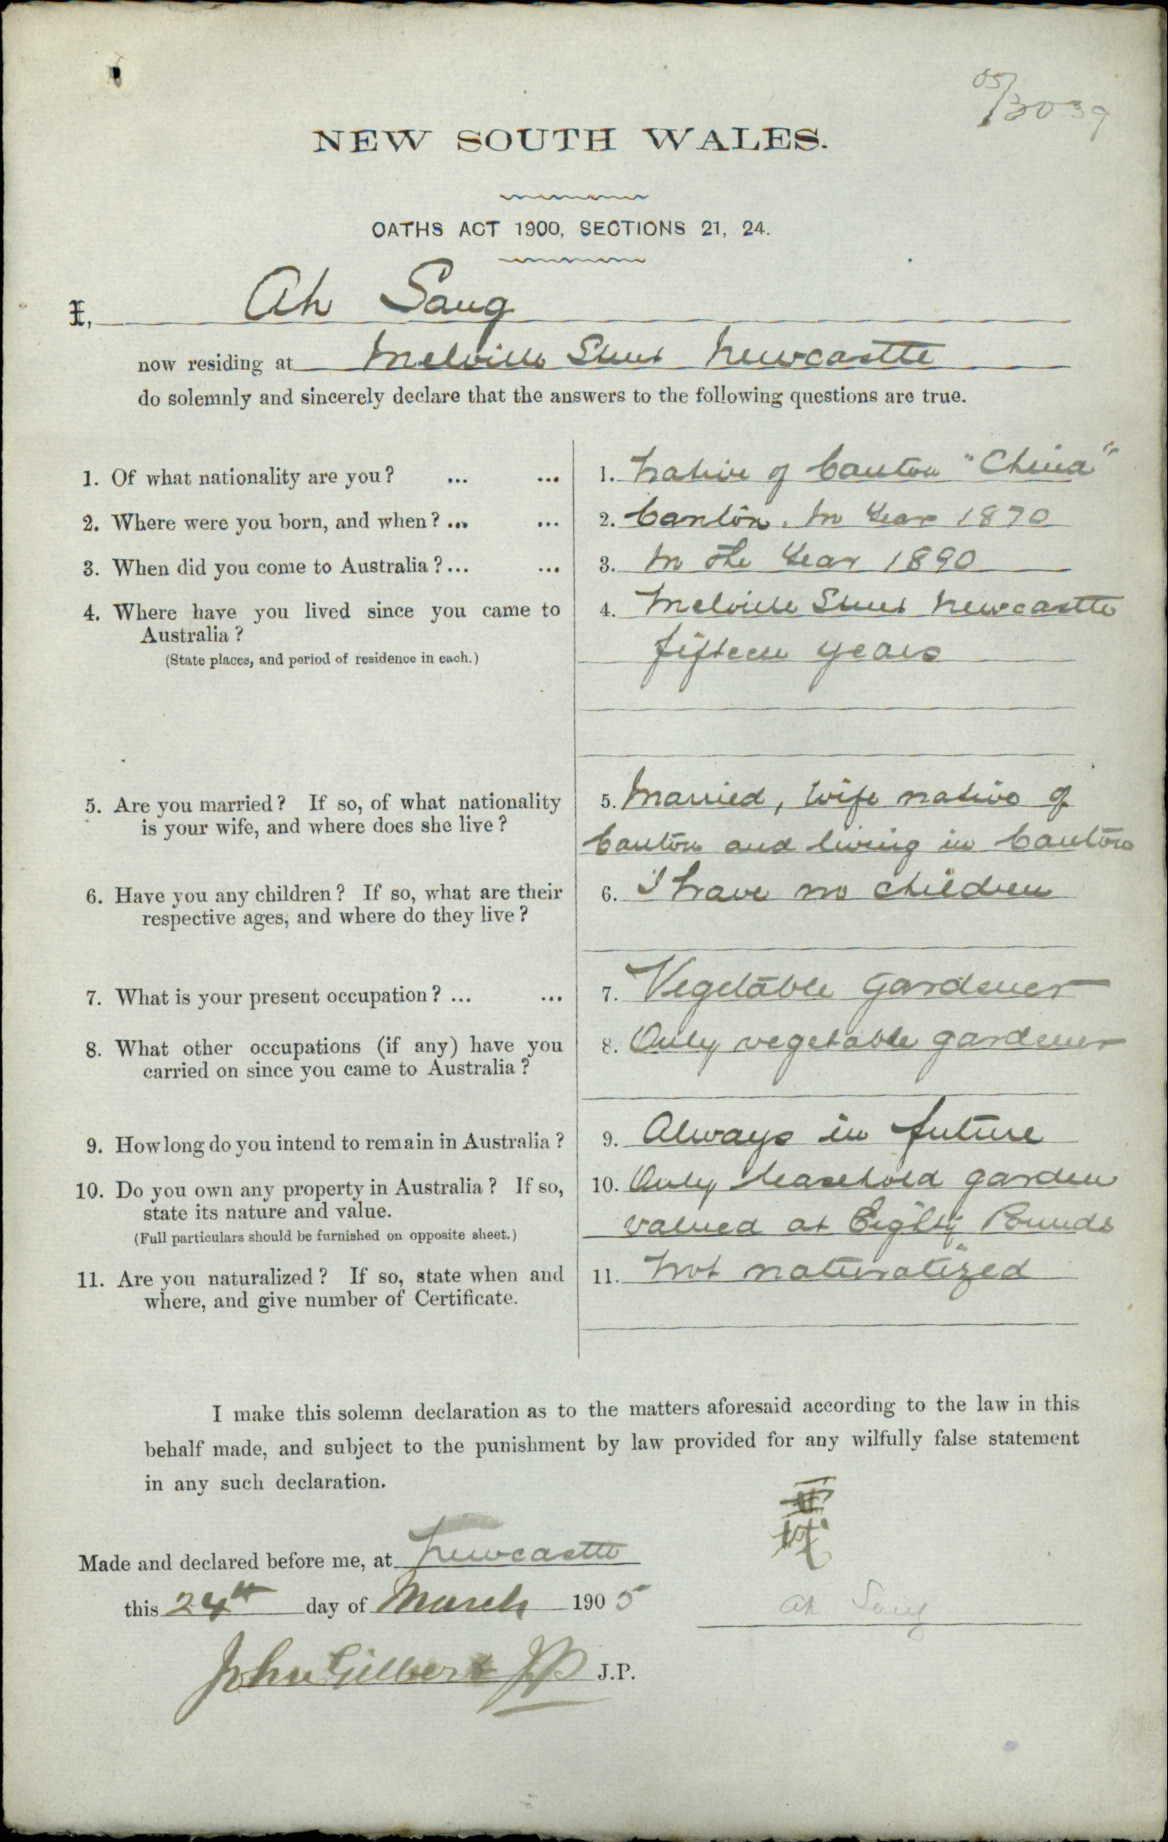 05/3039
NEW SOUTH WALES.
OATHS ACT 1900, SECTIONS 21, 24.
I, Ah Sang
now residing at Melville Street Newcastle
do solemnly and sincerely declare that the answers to the following questions are true.
1. Of what nationality are you? ... ... 1. Native of Canton "China"
2. Where were you born, and when? ... ... 2. Canton. In Year 1870
3. When did you come to Australia? ... ... 3. In the Year 1890
4. Where have you lived since you came to 4. Melville Street Newcastle
Australia? fifteen years
(State places, and period of residence in each.)
5. Are you married? If so, of what nationality 5. Married, wife native of
is your wife, and where does she live? Canton and living in Canton
6. Have you any children? If so, what are their 6. I have no children
respective ages, and where do they live?
7. What is your present occupation? ... ... 7. Vegetable Gardener
8. What other occupations (if any) have you 8. Only vegetable gardener
carried on since you came to Australia?
9. How long do you intend to remain in Australia? 9. Always in future
10. Do you own any property in Australia? If so, 10. Only leasehold garden
state its nature and value. valued at Eighty Pounds
(Full particulars should be furnished on opposite sheet.)
11. Are you naturalized? If so, state when and 11. Not naturalized
where, and give number of Certificate.
I make this solemn declaration as to the matters aforesaid according to the law in this
behalf made, and subject to the punishment by law provided for any wilfully false statement
in any such declaration.
Made and declared before me, at Newcastle
this 24th day of March 1905 Ah Sang
John Gilbert JP J.P.